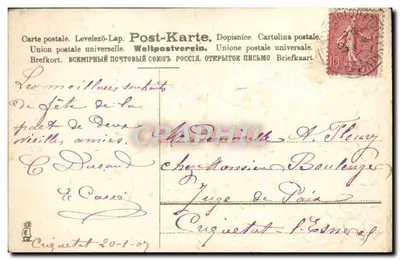 Carte postale. Levelező-Lap. Post-Karte. Dopisnice. Cartolina postale.
Union postale universelle. Weltpostverein. Unione postale universale.
Brefkort. ВСЕМІРНЫЙ ПОЧТОВЫЙ СОЮЗЪ РОССІЯ. ОТКРЫТОЕ ПИСЬМО Briefkaart.
Les meilleurs souhaits
de fête de la
part de deux
vieilles amies.
C. Durand
E
Criquetot 20-1-07
Mademoiselle A. Fleury
chez Monsieur Boulenger
Juge de Paix
Criquetot-l'Esneval